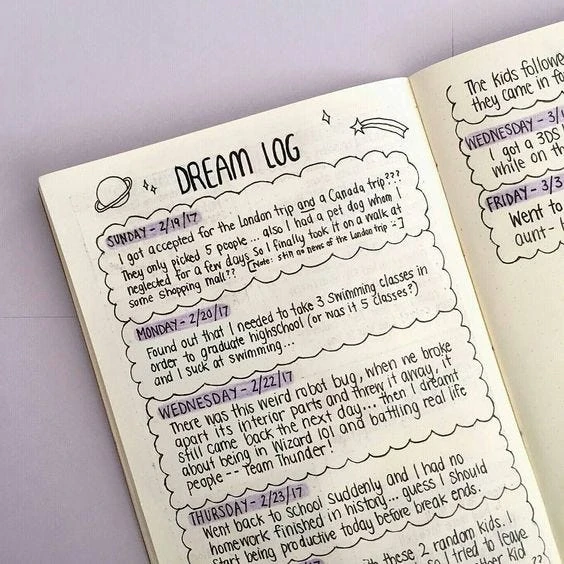 DREAM LOG
SUNDAY - 2/19/17
I got accepted for the London trip and a Canada trip???
They only picked 5 people... also I had a pet dog whom I
neglected for a few days so I finally took it on a walk at
some shopping mall?? [Note: still no news of the London trip :-]
MONDAY - 2/20/17
Found out that I needed to take 3 swimming classes in
order to graduate highschool (or was it 5 classes?)
and I suck at swimming...
WEDNESDAY - 2/22/17
There was this weird robot bug, when we broke
apart its interior parts and threw it away, it
still came back the next day... then I dreamt
about being in Wizard 101 and battling real life
people -- Team Thunder!
THURSDAY - 2/23/17
Went back to school suddenly and I had no
homework finished in history... guess I should
start being productive today before break ends.
with these 2 random kids. I
so I tried to leave
other kid
??
The kids followe
they came in fo
WEDNESDAY - 3/1
I got a 3DS
while on th
FRIDAY - 3/3
Went to
aunt-